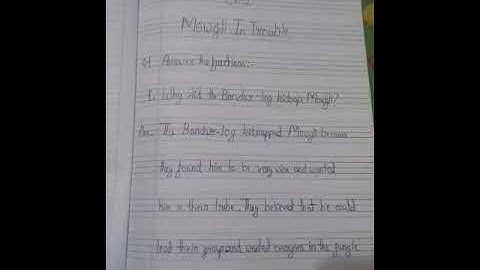 Mowgli In Trouble
Q1 Answer the Questions:-
1. Why did the Bandar-log kidnap Mowgli?
Ans. The Bandar-log kidnapped Mowgli because
they found him to be very wise and wanted
him in their tribe. They believed that he could
lead their group and wanted in the jungle